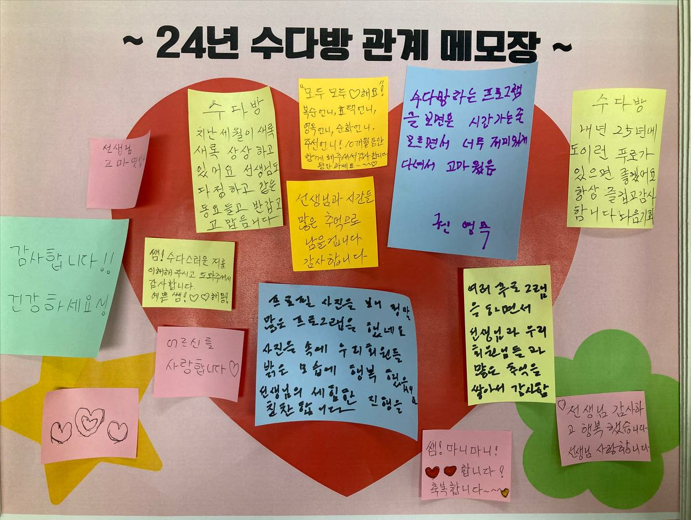 ~ 24년 수다방 관계 메모장 ~
선생님
고마
수다방
지난 세월이 새록
새록 상상하고
있어요 선생님도
다정하고 같은
동요들고 반갑고
고맙습니다
"모두 모두 ♡해요!
복순언니, 효택언니,
영옥언니, 순화언니,
언니! 10개월동안
함께 해주셔서 감사합니다
수다방 하는 프로그램
을 보면은 시간가는줄
모르면서 너무 재미있게
다녀서 고마웠음
영
수다방
내년 25년에
도 이런 푸로가
있으면 좋겠어요
항상 즐겁고 감사
합니다 다음기회
선생님과 시간들
많은 추억으로
남을겁니다
감사합니다
감사합니다!!
건강하세요
쌤! 수다스러운 저를
이해해 주시고 도와주셔서
감사합니다
예쁜 쌤! ♡♡해용!
어르신들
사랑합니다♡
프로필 사진을 보니 정말
많은 프로그램은 했네요
사진은 속에 우리회원들
밝은 모습에 행복 했음
선생님의 세밀한 진행을
칭찬합니다
여러 프로그램
을 하면서
선생님과 우리
회원님들과
많은 추억을
쌓아서 감사함
쌤! 마니마니!
♥♥합니다!
축복합니다~~~
♡선생님 감사하
고 행복했습니다
선생님 사랑합니다